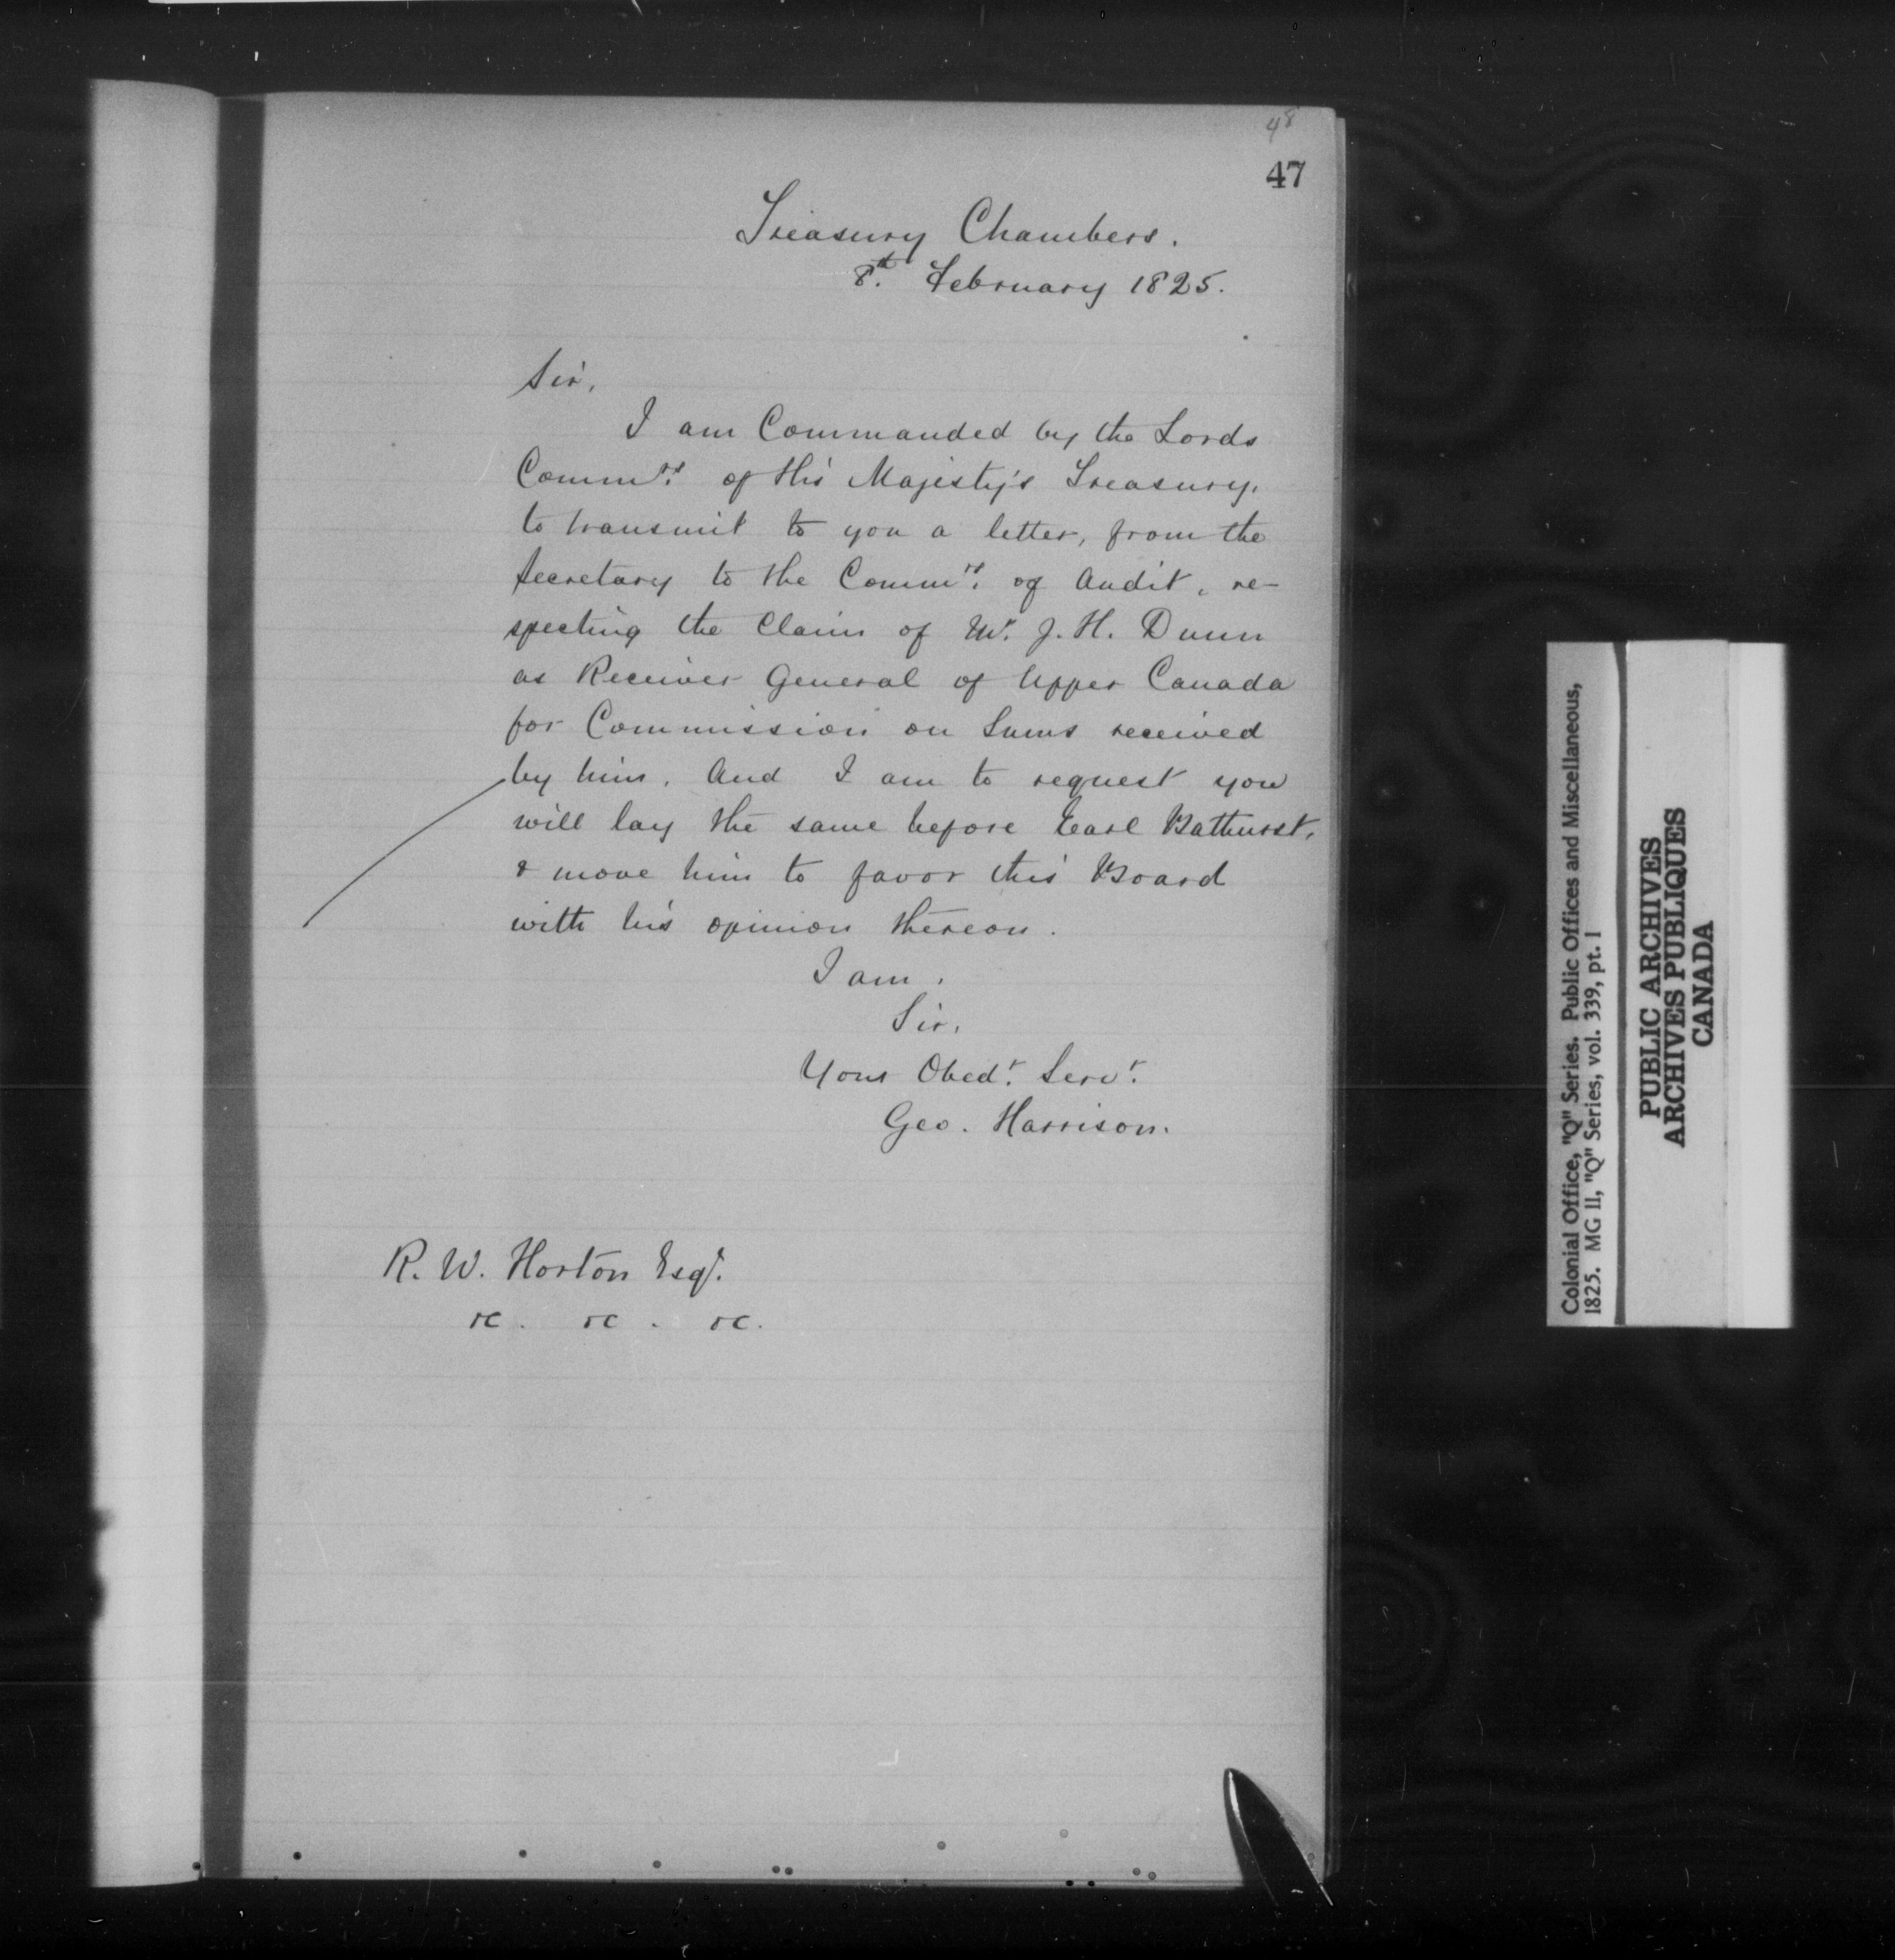 48
47
Treasury Chambers.
8th. February 1825.
Sir,
I am Commanded by the Lords
Commrs. of His Majesty's Treasury,
to transmit to you a letter, from the
Secretary to the Commrs. of Audit, re-
specting the Claim of Mr. J. H. Dunn
as Receiver General of Upper Canada
for Commission on Sums received
by him. And I am to request you
will lay the same before Earl Bathurst,
& move him to favor this Board
with his opinion thereon.
I am,
Sir,
Your Obedt. Servt.
Geo. Harrison.
R. W. Horton Esqr.
&c. &c. &c.
Colonial Office, "Q" Series. Public Offices and Miscellaneous,
1825. MG 11, "Q" Series, vol. 339, pt. 1
PUBLIC ARCHIVES
ARCHIVES PUBLIQUES
CANADA